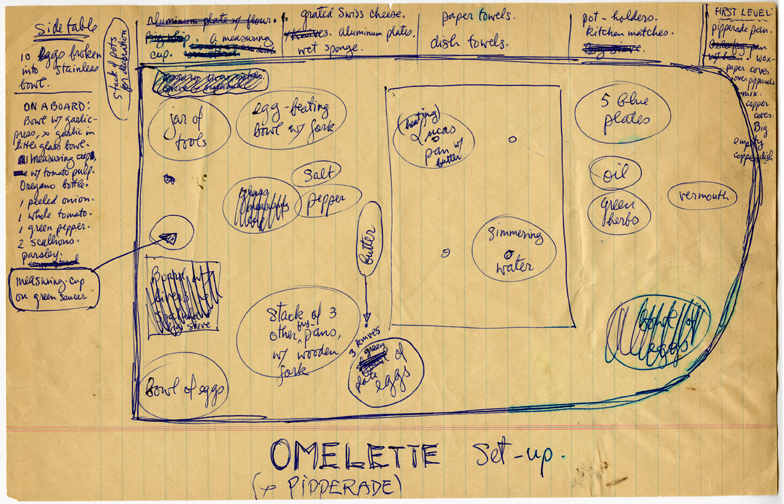 Side table
10 eggs broken
into stainless
bowl.
ON A BOARD:
Bowl w/ garlic-
press, garlic in
little glass bowl.
measuring cup
w/ tomato pulp.
Oregano bottle.
1 peeled onion.
1 whole tomato.
1 green pepper.
2 scallions.
parsley.
measuring-cup
on green saucer
Stack of pots
for decoration
Aluminum plate w/ flour.
a measuring
cup.
grated Swiss cheese.
Aluminum plate.
wet sponge.
paper towels.
dish towels.
pot-holders.
kitchen matches.
FIRST LEVEL:
pipperade pan.
wax-
paper cover
over pipperade
mix.
copper
cover.
Big
empty
copper dish.
jar of
tools
egg-beating
bowl w/ fork
salt
pepper
butter
Stack of 3
other pans,
w/ wooden
fork
bowl of eggs
3 knives
green
plate of
eggs
(heating)
Lucas
pan w/
butter
simmering
water
5 blue
plates
oil
green
herbs
vermouth
bowl of
eggs
OMELETTE Set-up.
(+ PIPPERADE)